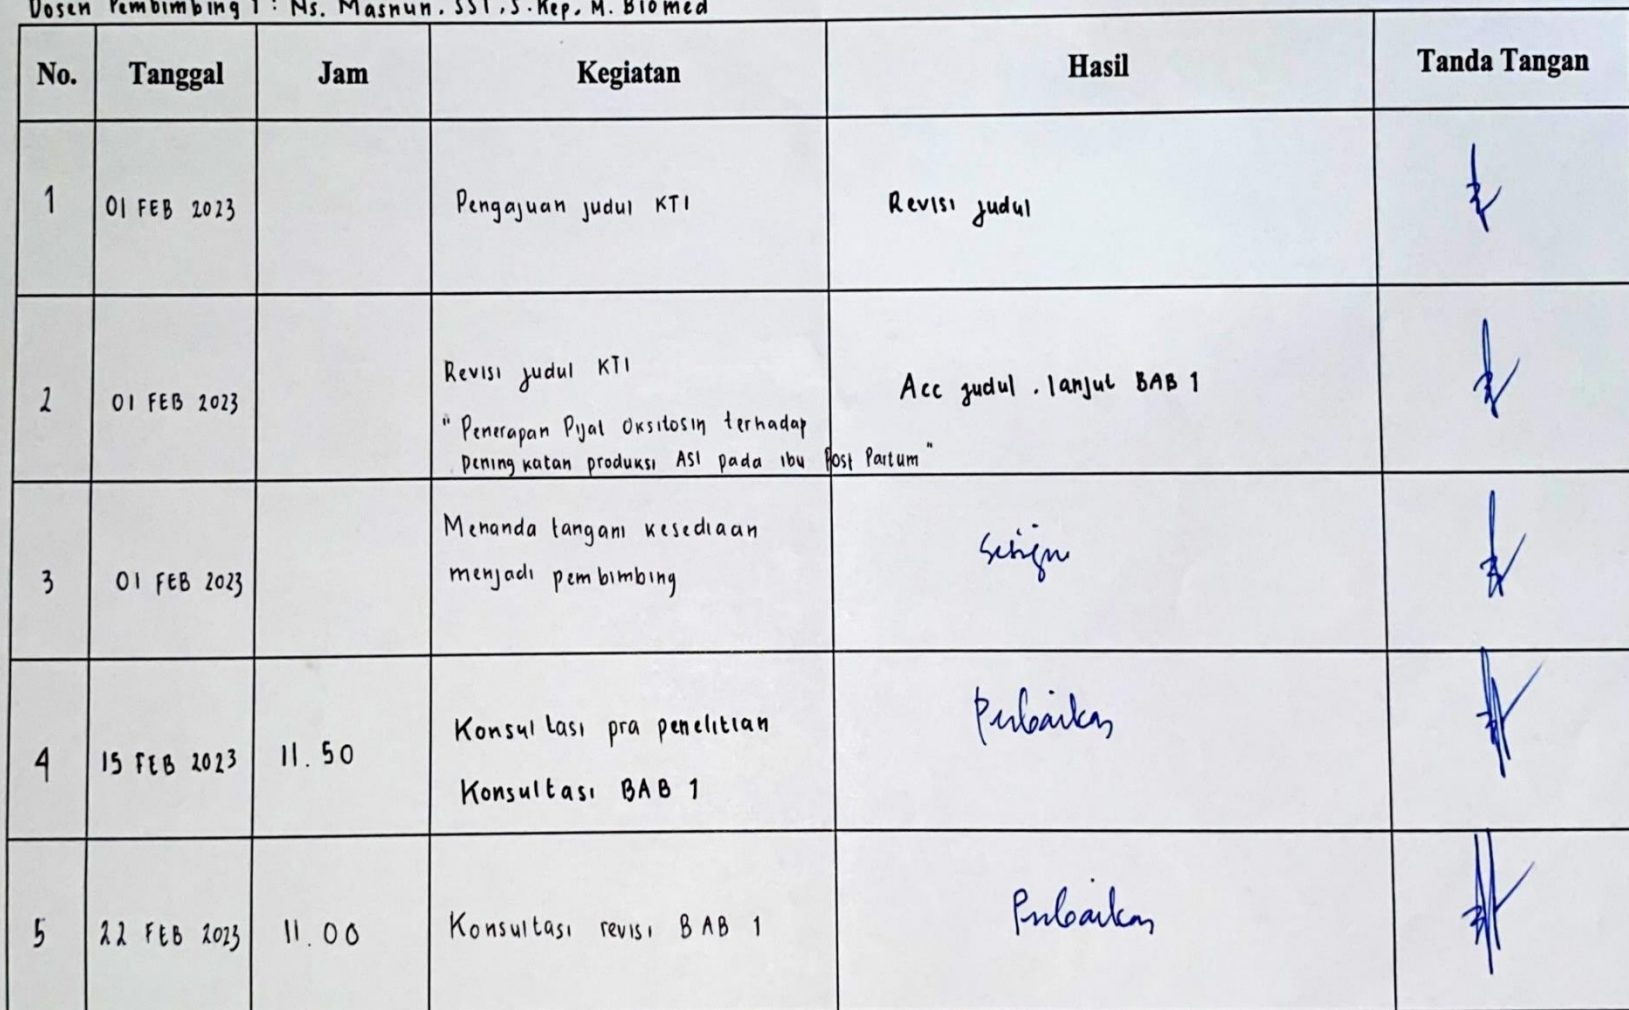 Dosen Pembimbing 1 : Ns. Masnun, SST, S.Kep, M. Biomed
No. Tanggal Jam Kegiatan Hasil Tanda Tangan
1 01 FEB 2023 Pengajuan judul KTI Revisi judul
2 01 FEB 2023 Revisi judul KTI Acc judul . lanjut BAB 1
" Penerapan Pijat Oksitosin terhadap
peningkatan produksi ASI pada ibu Post Partum "
3 01 FEB 2023 Menanda tangani kesediaan
menjadi pembimbing
4 15 FEB 2023 11.50 Konsultasi pra penelitian Perbaikan
Konsultasi BAB 1
5 22 FEB 2023 11.00 Konsultasi revisi BAB 1 Perbaikan